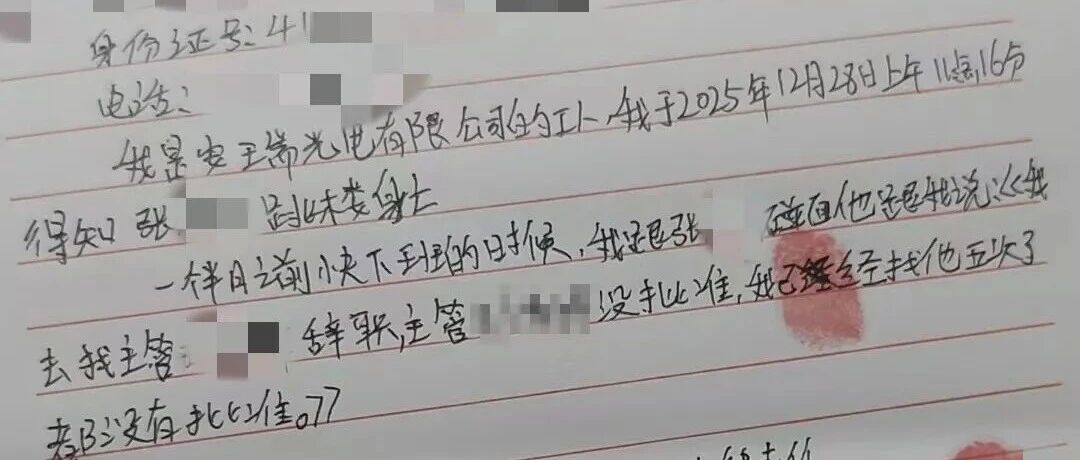 身份证号：41
电话：
我是安王端光电有限公司的工人，我于2025年12月28日上午11点16分
得知张 跳楼身亡
一个半月之前快下班的时候，我跟张 碰面他跟我说：《我
去找主管 辞职，主管 没批准，我已经找他五次了
都没有批准。》